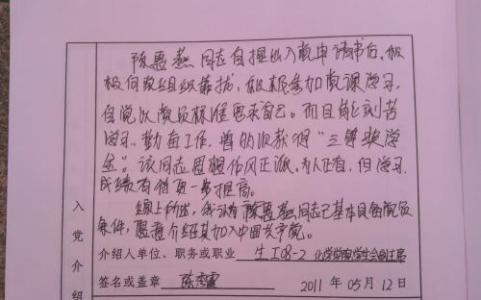 陈惠燕同志自提出入党申请书后，积
极向党组织靠拢，积极参加党课学习，
自觉以党员标准要求自己。而且能刻苦
学习、勤奋工作，曾的收获得"三等奖学
金"。该同志思想作风正派，为人正直，但学习
成绩有待更一步提高。
综上所述，我认为陈惠燕同志已基本具备党员
条件，愿意介绍其加入中国共产党。
入党介绍
介绍人单位、职务或职业 生工08-2 化学学院学生会副主席
签名或盖章 陈
2011 年 05 月 12 日